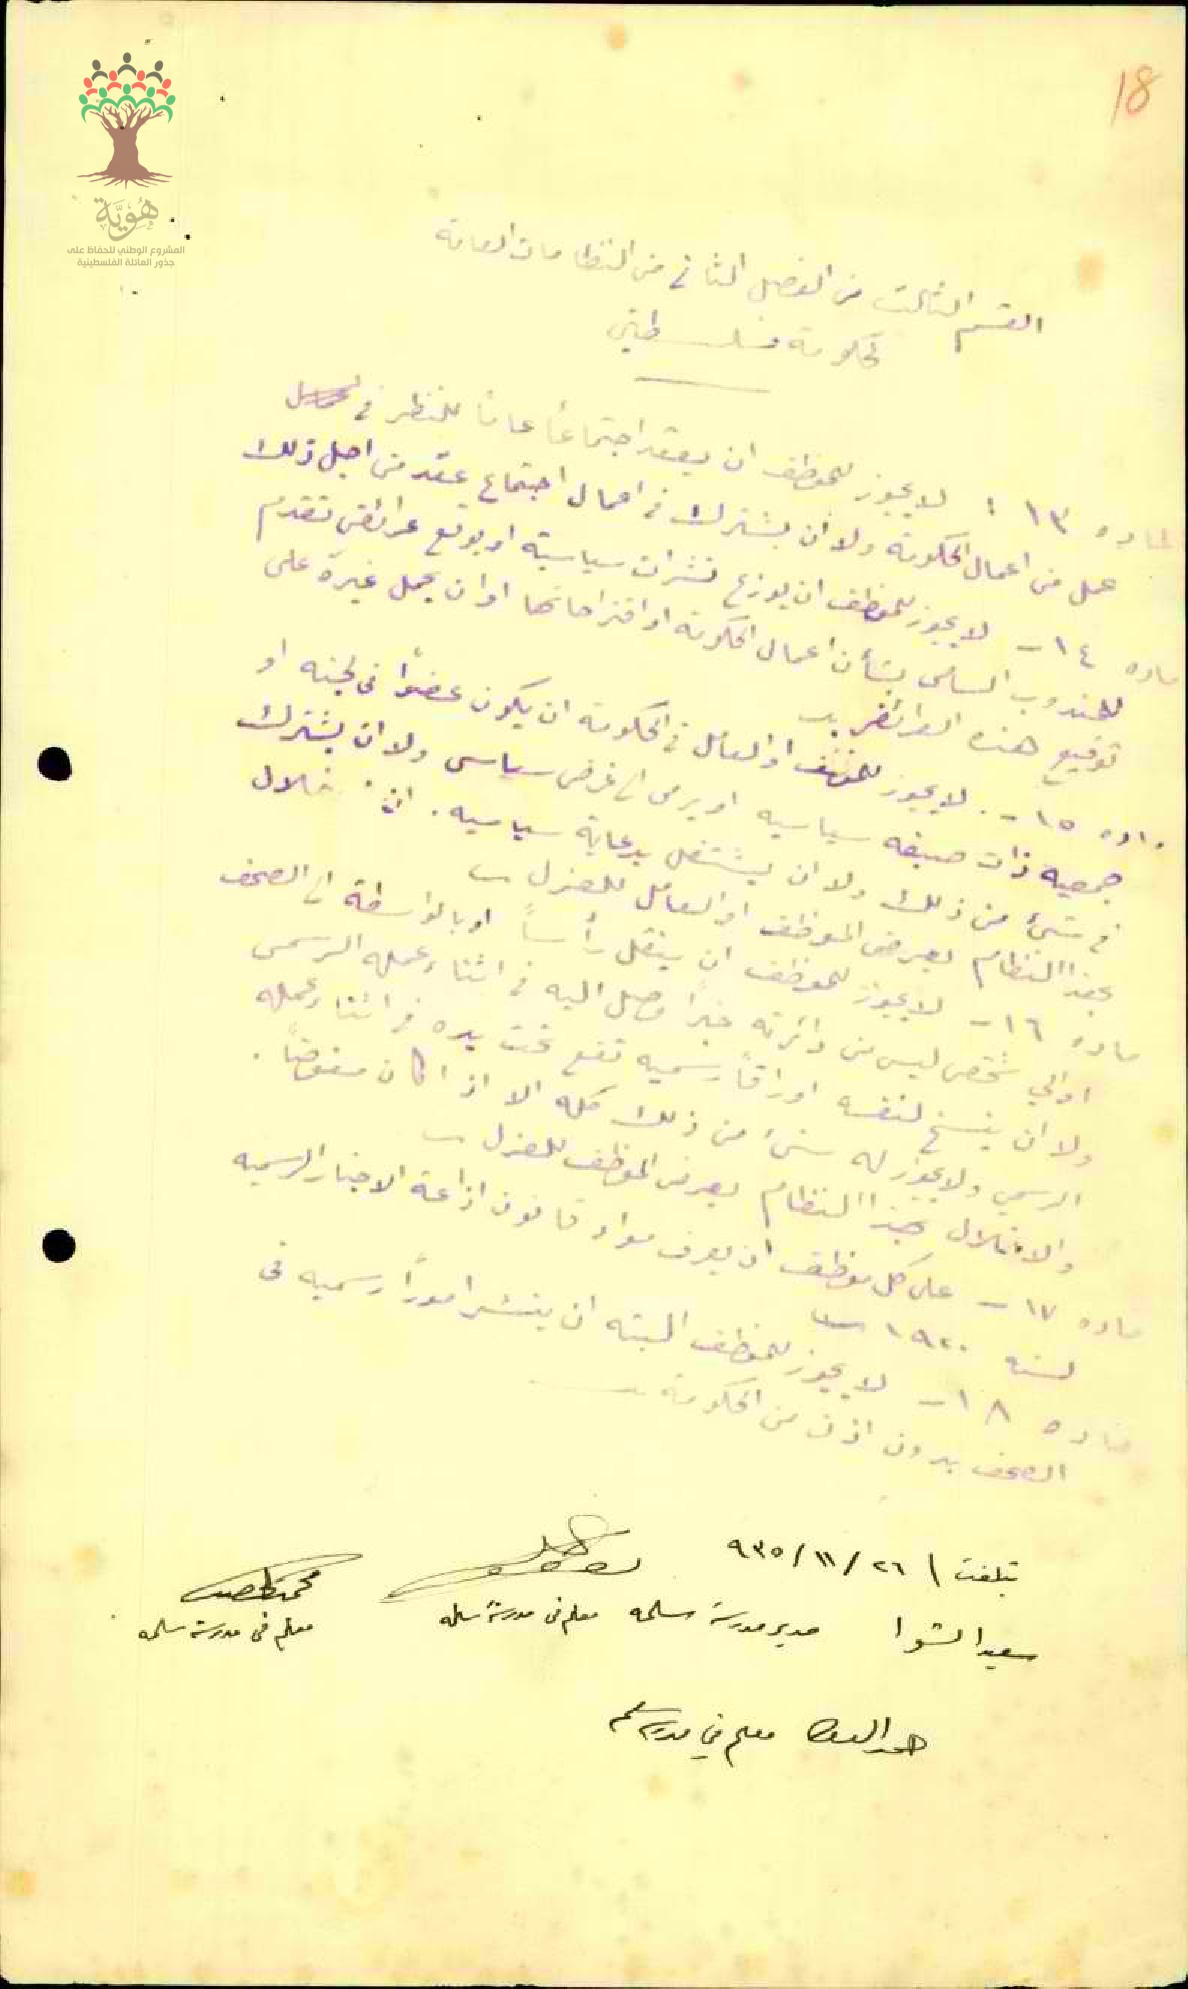 18
هُوِيَّة
المشروع الوطني للحفاظ على
جذور العائلة الفلسطينية
القسم الثالث من الفصل الثاني من النظامات العامة
لحكومة فلسطين
مادة ١٣ : لا يجوز للموظف ان يعقد اجتماعاً عاماً للنظر في
عمل من اعمال الحكومة ولا ان يشترك في اعمال اجتماع عقد من اجل ذلك
مادة ١٤ - لا يجوز للموظف ان يوزع نشرات سياسية او يوقع عرائض تقدم
للمندوب السامي بشأن اعمال الحكومة او اقتراحاتها او ان يحمل غيره على
توقيع هذه العرائض
مادة ١٥ - لا يجوز للموظف او العامل في الحكومة ان يكون عضواً في لجنه او
جمعيه ذات صبغه سياسيه او يرمى الى غرض سياسي ولا ان يشترك
في شئ من ذلك ولا ان يشتغل بدعاية سياسيه . الاخلال
بهذا النظام يعرض الموظف او العامل للعزل
مادة ١٦ - لا يجوز للموظف ان ينقل رأساً او بالواسطة الى الصحف
او الى شخص ليس من دائرته خبراً وصل اليه في اثناء عمله الرسمي
ولا ان ينسخ لنفسه اوراقاً رسميه تقع تحت يده في اثناء عمله
الرسمي ولا يجوز له شئ من ذلك كله الا اذا كان مفوضاً .
والاخلال بهذا النظام يعرض الموظف للعزل
مادة ١٧ - على كل موظف ان يعرف مواد قانون اذاعة الاخبار الرسميه
لسنه ١٩٢٠
مادة ١٨ - لا يجوز للموظف البته ان ينشر اموراً رسميه في
الصحف بدون اذن من الحكومة
تبلغت ٢٦/١١/٩٣٥
سعيد الشوا مدير مدرسة سلمه معلم في مدرسة سلمه
معلم في مدرسة سلمه
معلم في مدرسة سلمه